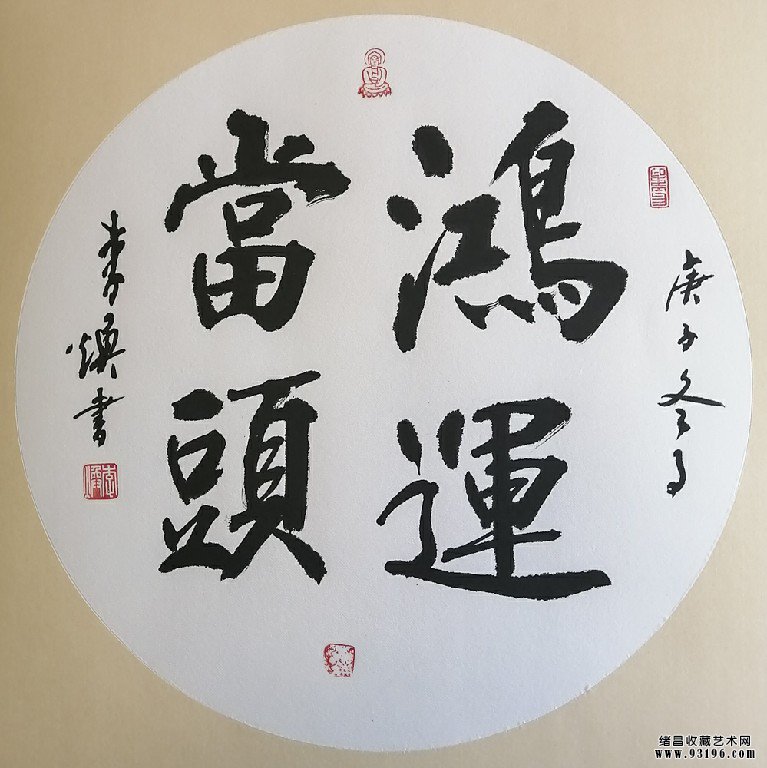 庚子冬月
鴻運
當頭
李煥書
绪昌收藏艺术网
www.93196.com